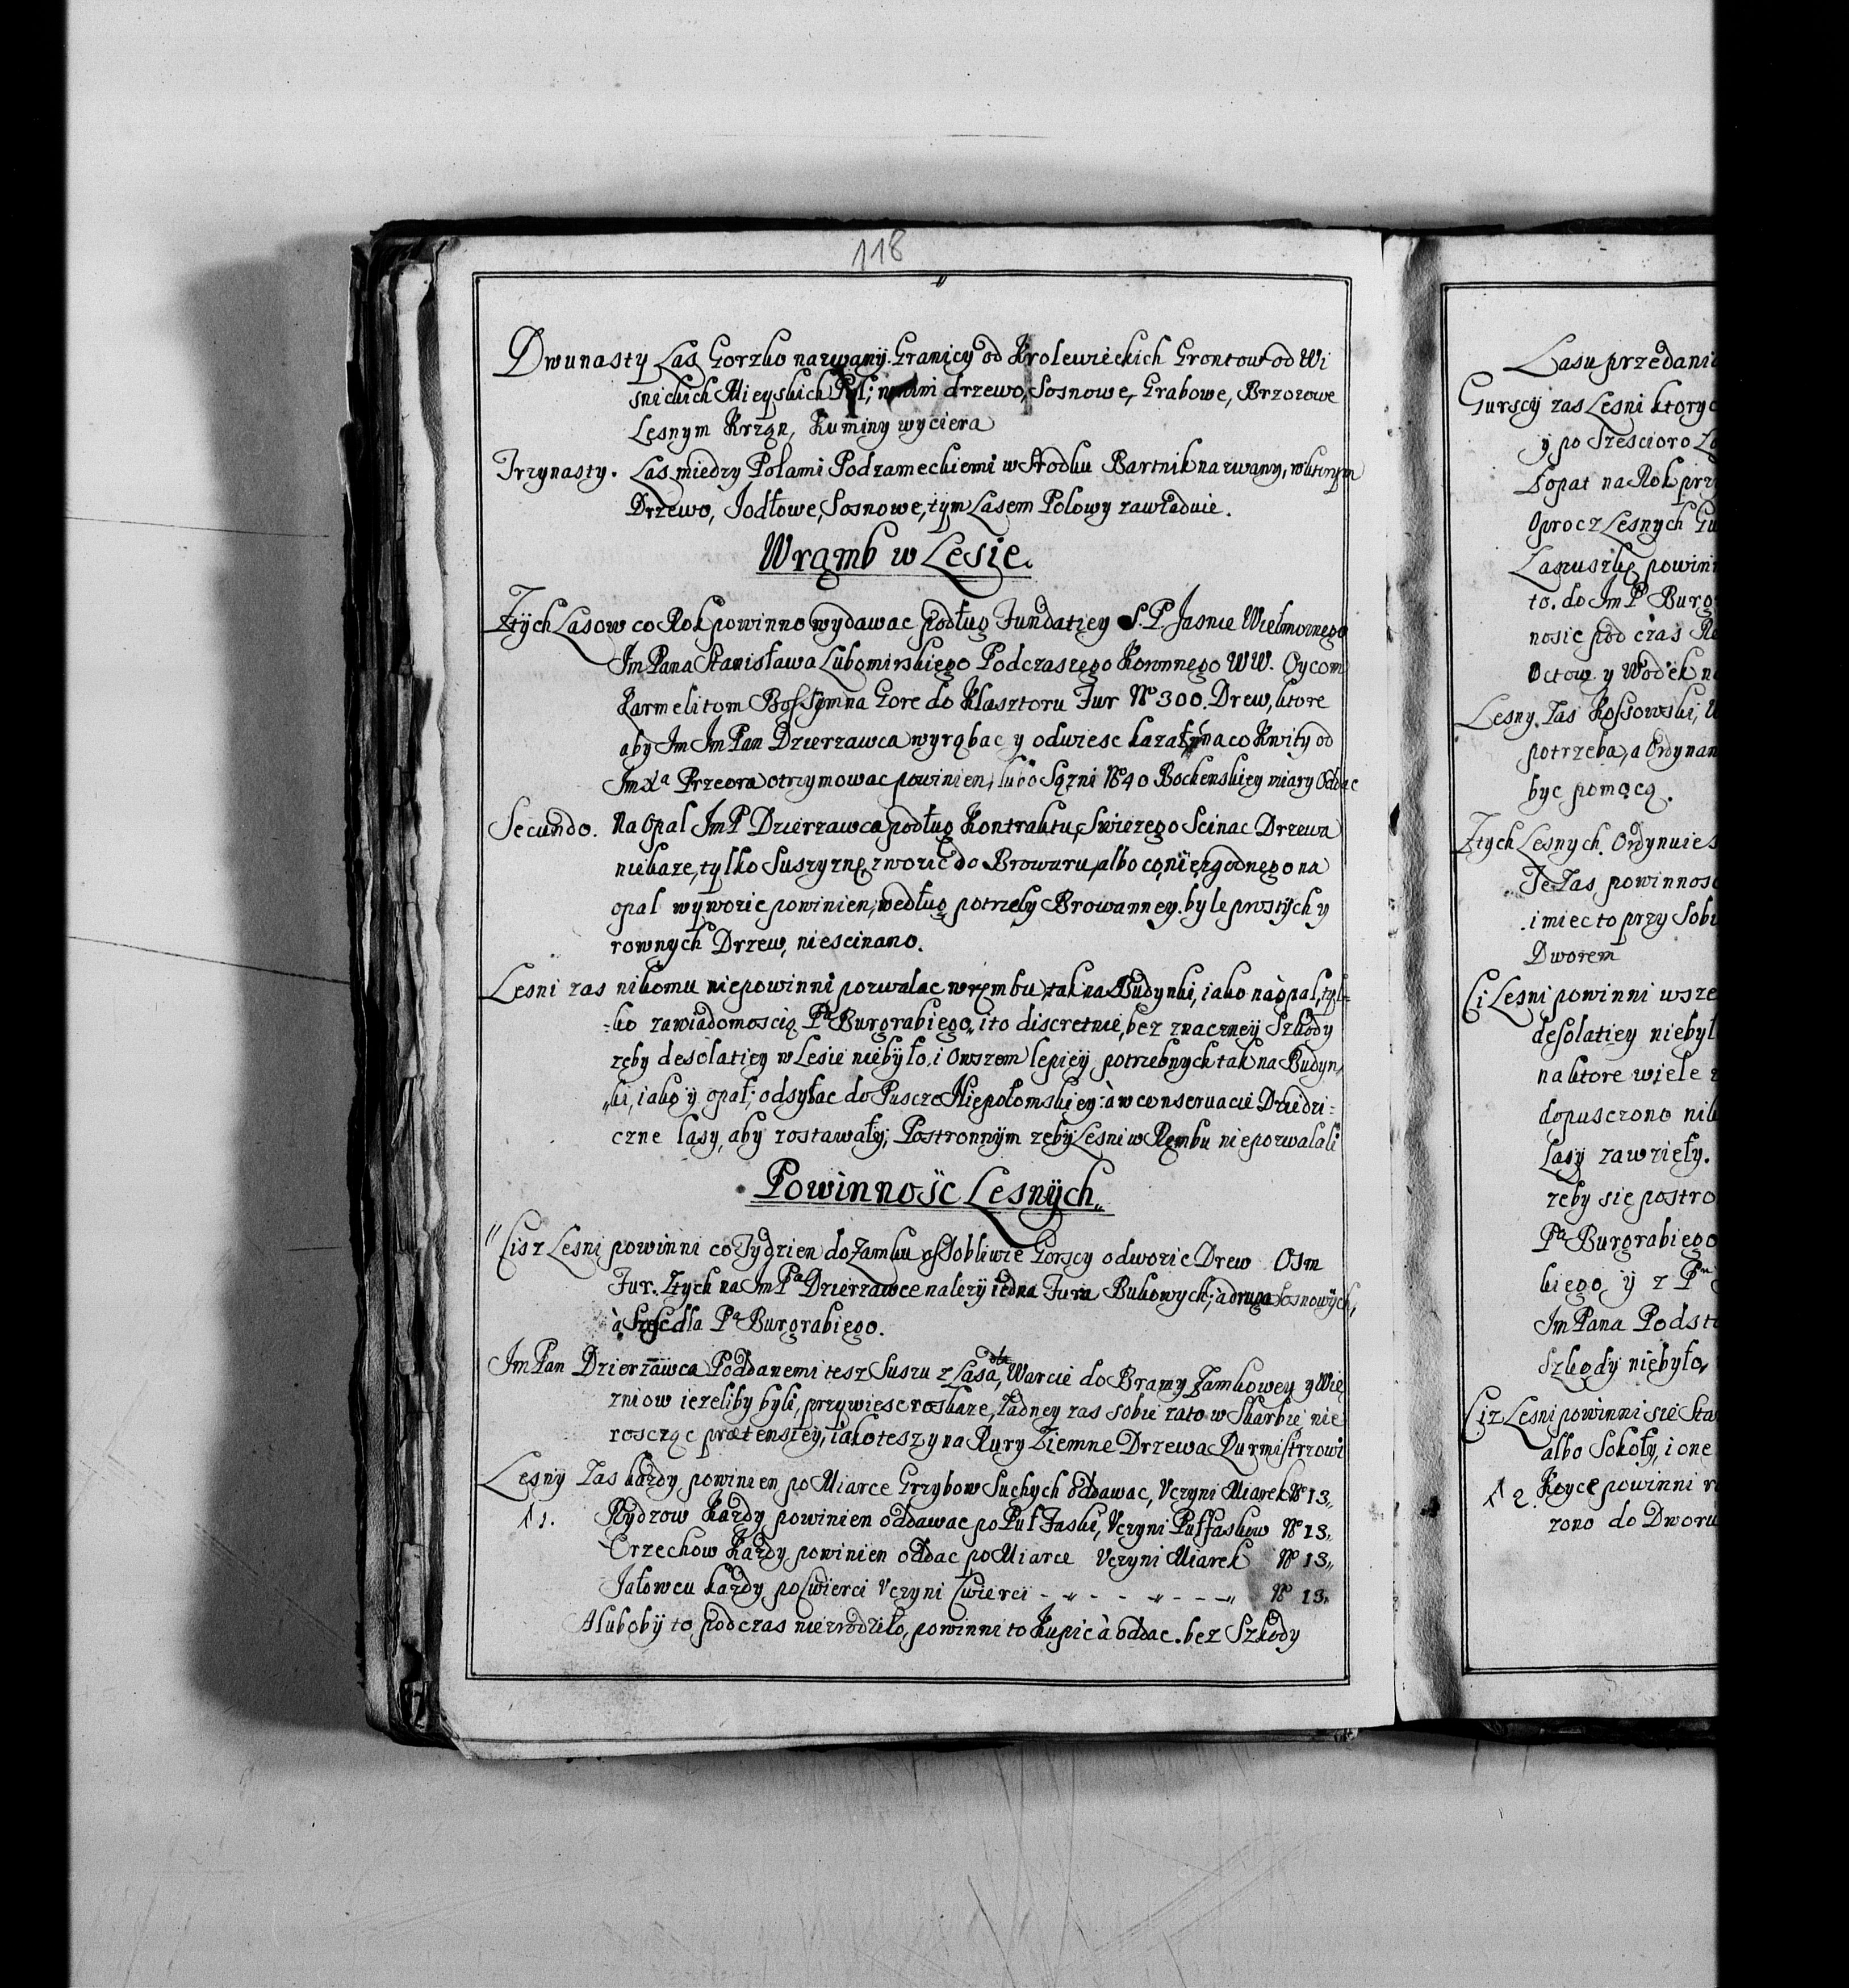 118
Dwunasty Las Gorzko nazwany. Granicy od Krolewieckich Grontow od Wi
snickich Mieyskich Pol; drzewo, Sosnowe, Grabowe, Brzozowe
Lesnym Krząn, Kuminy wyciera
Trzynasty. Las miedzy Polami Podzameckiemi w srodku Bartnik nazwany, wktorym
Drzewo, Jodłowe, Sosnowe, tym Lasem Polowy zawładuie.
Wrąmb w Lesie.
Ztych Lasow co Rok powinno wydawac podług Fundatiey S. P. Jasnie Wielmoznego
Jm Pana Stanisława Lubomirskiego Podczaszego Koronnego WW. Oycom
Karmelitom Bossym na Gore do Klasztoru Fur No 300. Drew, ktore
aby Jm Jm Pan Dzierzawca wyrąbac y odwiesc kazał, na co Kwity od
Jm Xa Przeora otrzymowac powinien, lubo Sązni No 40 Bochenskiey miary Oddac
Secundo. Na Opal Jm P Dzierzawca podług Kontraktu, Swiezego Scinac Drzewa
niekaze, tylko Suszyznę, zwozic do Browaru, albo co niezgodnego na
opal wywozic powinien, według potrzeby Browarney. byle prostych y
rownych Drzew, niescinano.
Lesni zas nikomu niepowinni pozwalac wrembu, tak na Budynki, iako na opal, tyl=
=ko zawiadomoscią Pa Burgrabiego, ito discretnie, bez znaczney Szkody
zeby desolatiey w Lesie niebyło. i Owszem lepiey, potrzebnych tak na Budyn,,
,,ki, iako y opał; odsyłac do Puscze Niepołomskiey: à w conseruacie Dziedzi=
czne lasy, aby zostawały; Postronnym zeby Lesni w Rembu niepozwalali
Powinnosc Lesnych,,
,,Cisz Lesni powinni co Tydzien do Zamku osobliwie Gorscy odwozic Drew Osm
Fur. Ztych na Jm Pa Dzierzawce nalezy iedna Fura Bukowych; à druga Sosnowych,
à Szesc dla Pa Burgrabiego.
Jm Pan Dzierzawca Poddanemi tesz Suszu z Lasa, dla Warcie do Bramy Zamkowey y Wię
zniow iezeliby byli, przywiesc roskaze, Zadney zas sobie zato w Skarbie nie
roscząc prætensiey, iako tesz y na Rury Ziemne Drzewa Rurmistrzowi
Lesny Zas kazdy powinien po Miarce Grzybow Suchych oddawac, Vczyni Miarek No 13,,
1. Rydzow Kazdy powinien oddawac po Puł Faski, Vczyni Puł faskow No 13,,
Orzechow Kazdy powinien oddac po Miarce Vczyni Miarek No 13,,
Jałowcu kazdy po Cwierci Vczyni Cwierci - - - - - - - No 13,,
A luboby to podczas niezrodziło, powinni to Kupic à oddac. bez Szkody
Lasu przedani
Gurscy zas Lesni ktory
y po Szescioro
Łopat na Rok prz
Oprocz Lesnych Gu
Laszuszkę powin
to. do Jm P Burg
nosic pod czas
Octow y Wodek n
Lesny. Zas Kossowski,
potrzeba, a Ordynan
byc pomocą.
Ztych Lesnych. Ordynuie
Te Zas powinnosc
imiec to przy Sobi
Dworem
Ci Lesni powinni wsze
desolatiey niebył
na ktore wiele
dopusczono nik
Lasy zawzieły.
zeby sie postro
Pa Burgrabiego
kiego y z Pn
Jm Pana Podst
Szkody niebyło,
Cisz Lesni powinni sie Sta
albo Sokoły, i one
2. Koyce powinni
zono do Dworu